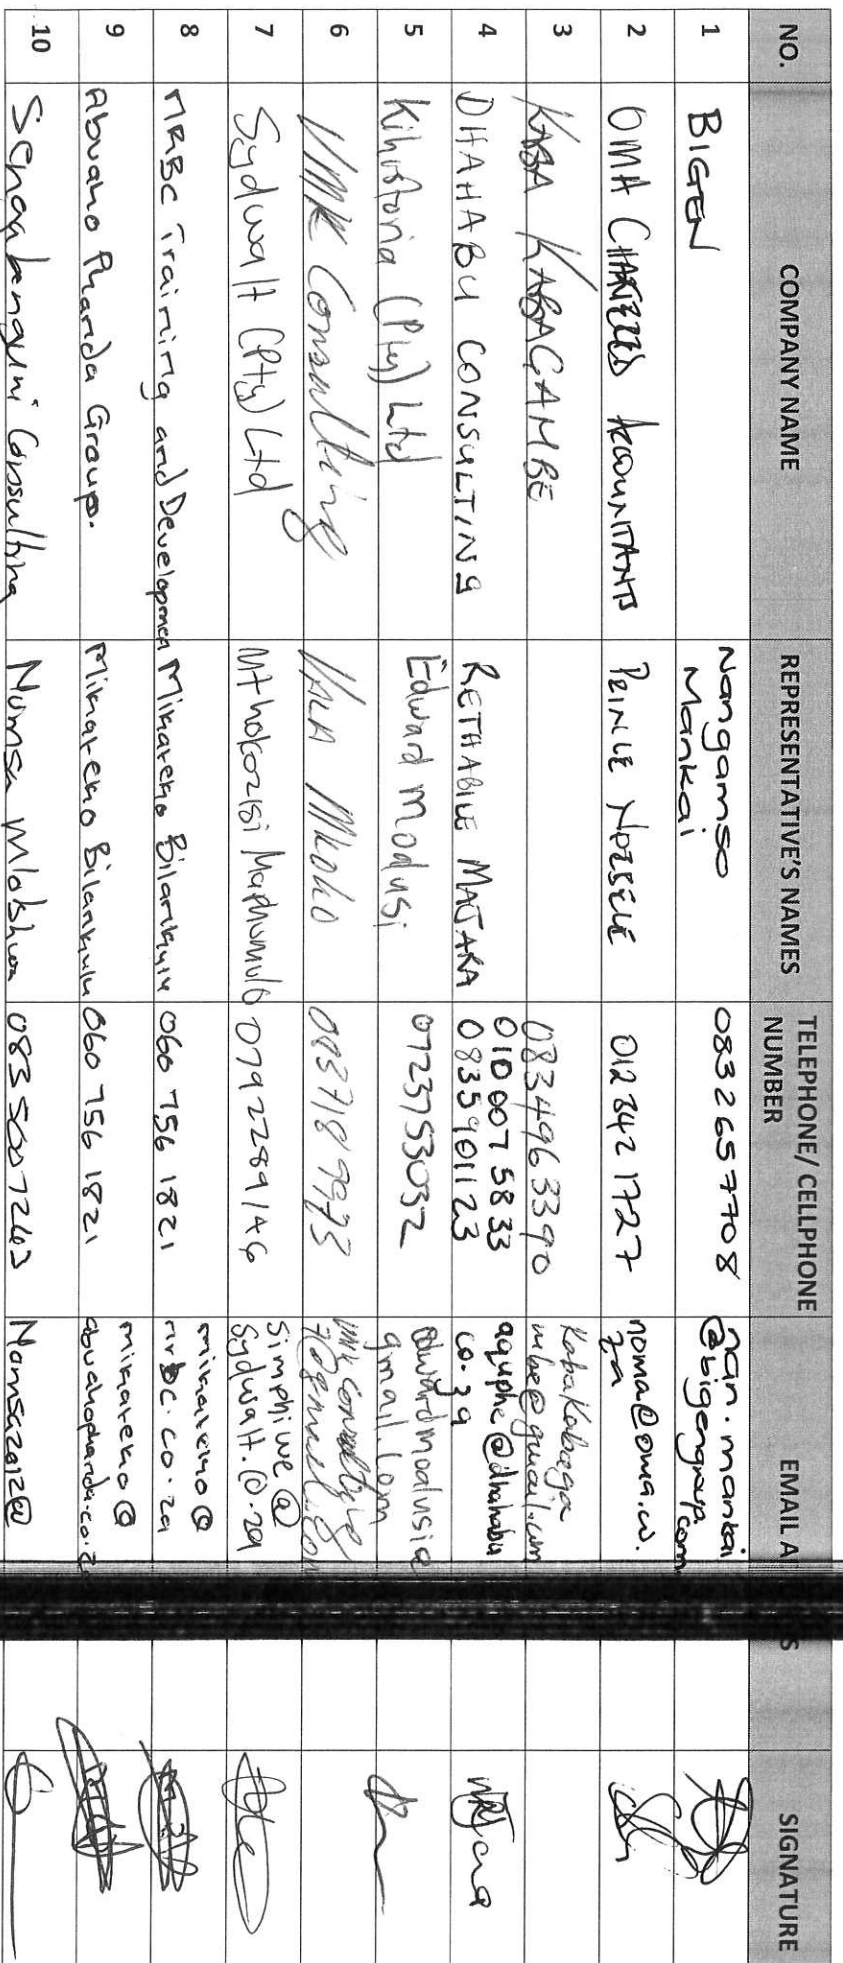 NO. COMPANY NAME REPRESENTATIVE'S NAMES TELEPHONE/ CELLPHONE NUMBER EMAIL A S SIGNATURE
1 BIGEN Nangamso Mankai 0832657708 nan.mankai @bigengroup.com
2 OMA CHARTERED ACCOUNTANTS 012 342 1727 noma@oma.co.za
3 KABA KABAGAMBE 0834963390 KabaKabagambe@gmail.com
4 DHAHABU CONSULTING RETHABILE MAJARA 010 007 5833 0835901123 @dhahabu co.za
5 Kihistoria (Pty) Ltd Edward Modusi 0723753032 gmail.com
6 VMK Consulting
7 Sydwalt (Pty) Ltd Mthokozisi Maphumulo 0792289146 simphiwe@ sydwalt.co.za
8 MRBC Training and Developmen Mikateko Bilankulu 060 756 1821 mikateko@ mrbc.co.za
9 Abuaho Phanda Group. Mikateko Bilankulu 060 756 1821 mikateko@
10 Consulting Nomsa 083 500 7263 Nomsa2012@